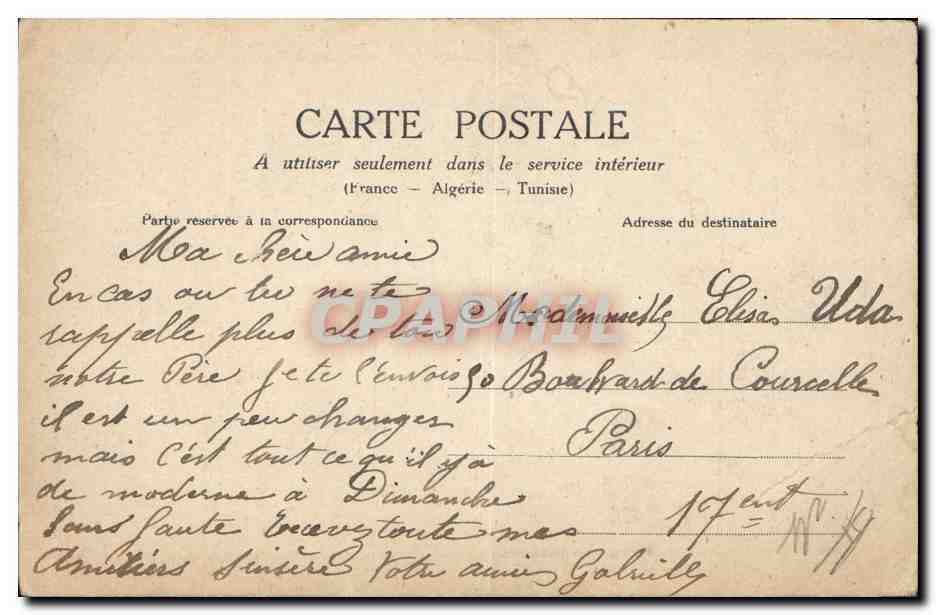 CARTE POSTALE
A utiliser seulement dans le service intérieur
(France — Algérie — Tunisie)
Partie réservée à la correspondance
Adresse du destinataire
Ma chère amie
En cas ou tu ne te
rappelle plus de ton
notre Père Je te l'envois
il est un peu changer
mais c'est tout ce qu'il y à
de moderne à Dimanche
Sans faute Recevez toute mes
Amitiers Sinsère Votre amie Gabrielle
Mademoiselle Elisa Uda
50 Boulvard de Courcelle
Paris
17 ent
CPAPHIL